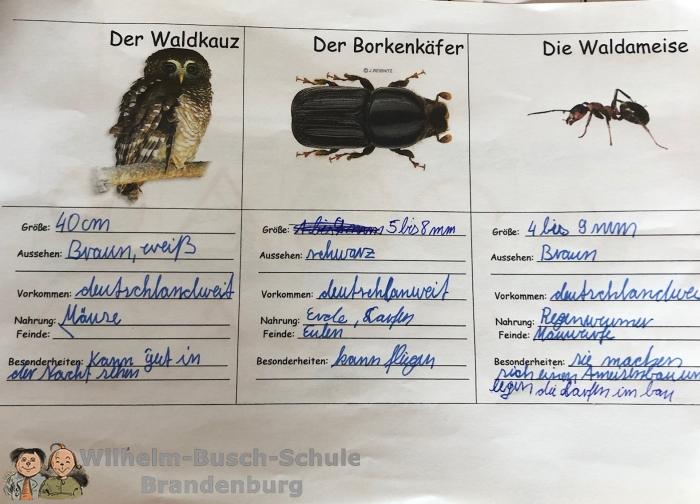 Der Waldkauz
Größe: 40 cm
Aussehen: Braun, weiß
Vorkommen: deutschlandweit
Nahrung: Mäuse
Feinde:
Besonderheiten: Kann gut in
der Nacht sehen
Der Borkenkäfer
© J. REIBNITZ
Größe: 5 bis 8 mm
Aussehen: schwarz
Vorkommen: deutschlanweit
Nahrung:
Feinde: Eulen
Besonderheiten: kann fliegen
Die Waldameise
Größe: 4 bis 9 mm
Aussehen: Braun
Vorkommen: deutschlandwei
Nahrung: Regenwürmer
Feinde: Maulwürfe
Besonderheiten: sie machen
sich einen Ameisenbau un
legen die im bau
Wilhelm-Busch-Schule
Brandenburg